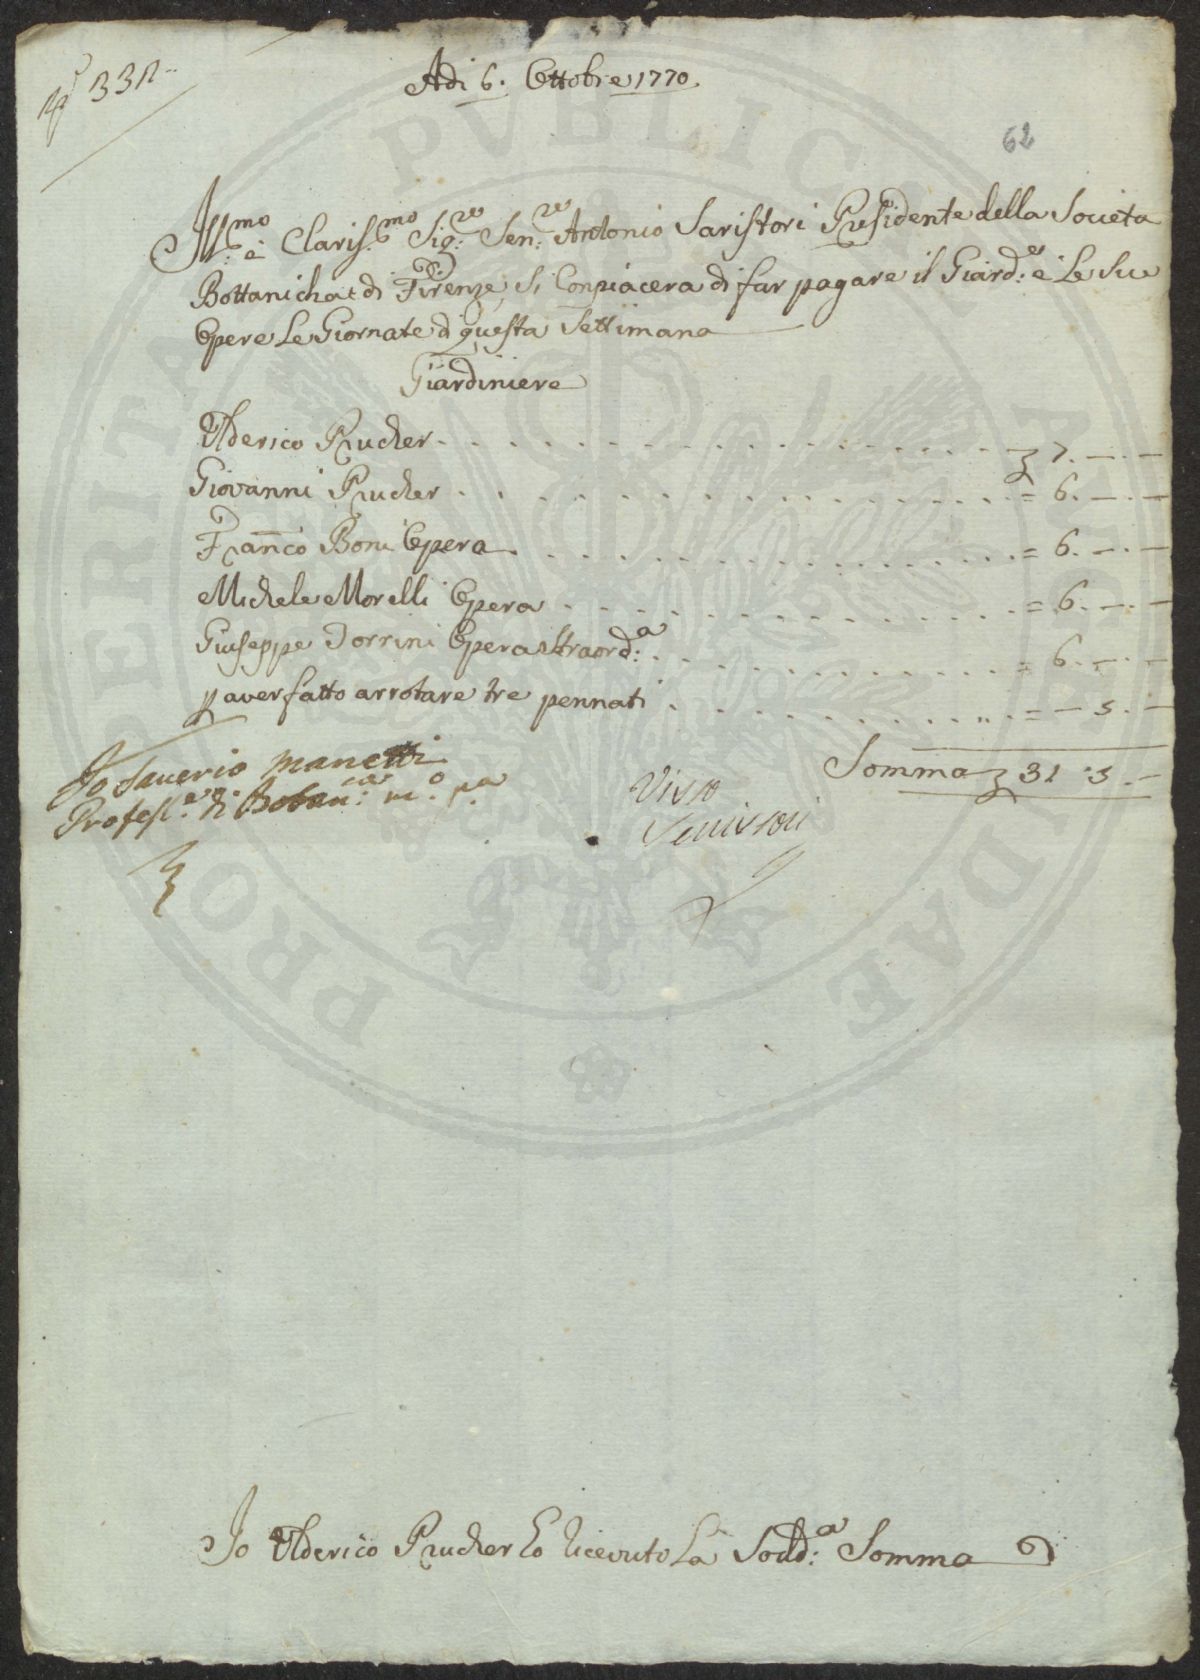 N.° 332
Adi 6. Ottobre 1770.
62
Ill:mo e Claris:mo Sig:re Sen:re Antonio Saristori Presidente della Societa
Bottanicha di Firenze, si Conpiacera di far pagare il Giard:e e Le Sue
Opere Le Giornate di questa Settimana
Giardiniere
Ulderico Prucher . . . . . . . . . . . . . . . . £ 7. —. —
Giovanni Prucher . . . . . . . . . . . . . . . . = 6. —. —
Franco Boni Opera . . . . . . . . . . . . . . . = 6. —. —
Michele Morelli Opera . . . . . . . . . . . . . . = 6. —. —
Giuseppe Dorrini Opera straord:a . . . . . . . . . . = 6. —. —
p aver fatto arrotare tre pennati . . . . . . . . . . = — 5. —
Somma £ 31 : 5. —
Io Saverio Manetti
Profess.e di Botan:ca m.o p.a
Visto
Io Ulderico Prucher ho riceuto La Sodd:a Somma
PROSPERITATI PUBLICAE AUGENDAE